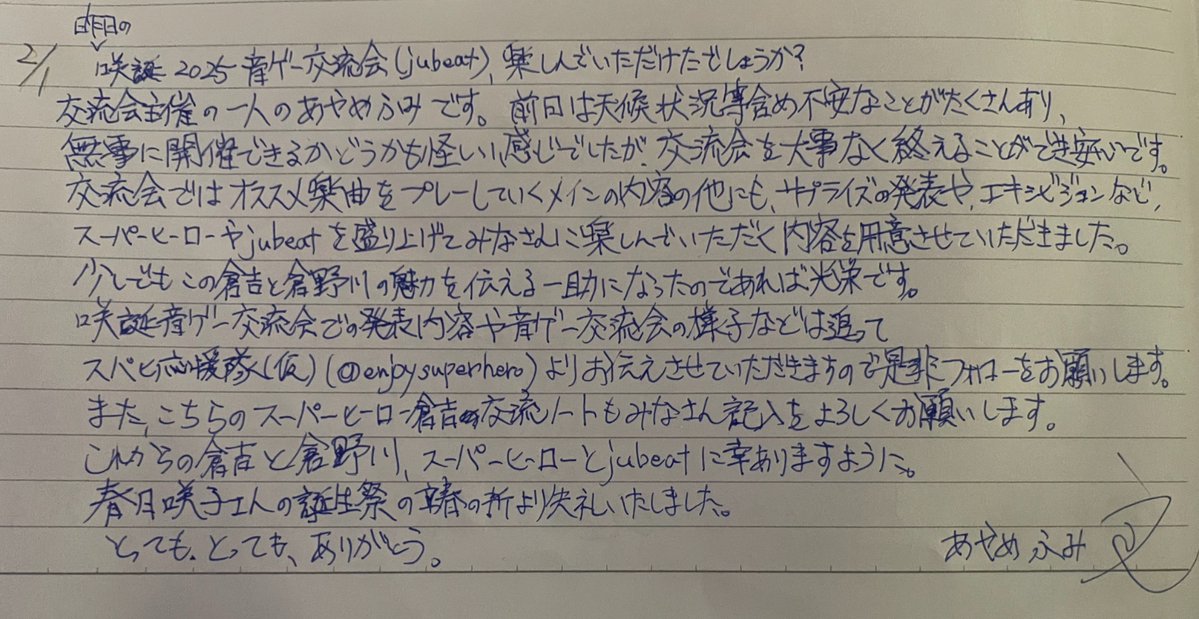 昨日の
2/1 咲誕2025音ゲー交流会(jubeat)、楽しんでいただけたでしょうか?
交流会主催の一人のあやめふみです。前日は天候状況等含め不安なことがたくさんあり、
無事に開催できるかどうかも怪しい感じでしたが、交流会を大事なく終えることができ安心です。
交流会ではオススメ楽曲をプレーしていくメインの内容の他にも、サプライズの発表や、エキシビジョンなど、
スーパーヒーローやjubeatを盛り上げてみなさんに楽しんでいただく内容を用意させていただきました。
少しでもこの倉吉と倉野川の魅力を伝える一助になったのであれば光栄です。
咲誕音ゲー交流会での発表内容や音ゲー交流会の様子などは追って
スパヒ応援隊(仮)(@enjoysuperhero)よりお伝えさせていただきますので是非フォローをお願いします。
また、こちらのスーパーヒーロー倉吉の交流ノートもみなさん記入をよろしくお願いします。
これからの倉吉と倉野川、スーパーヒーローとjubeatに幸ありますように。
春日咲子さんの誕生祭の立春の折より失礼いたしました。
とっても、とっても、ありがとう。
あやめふみ